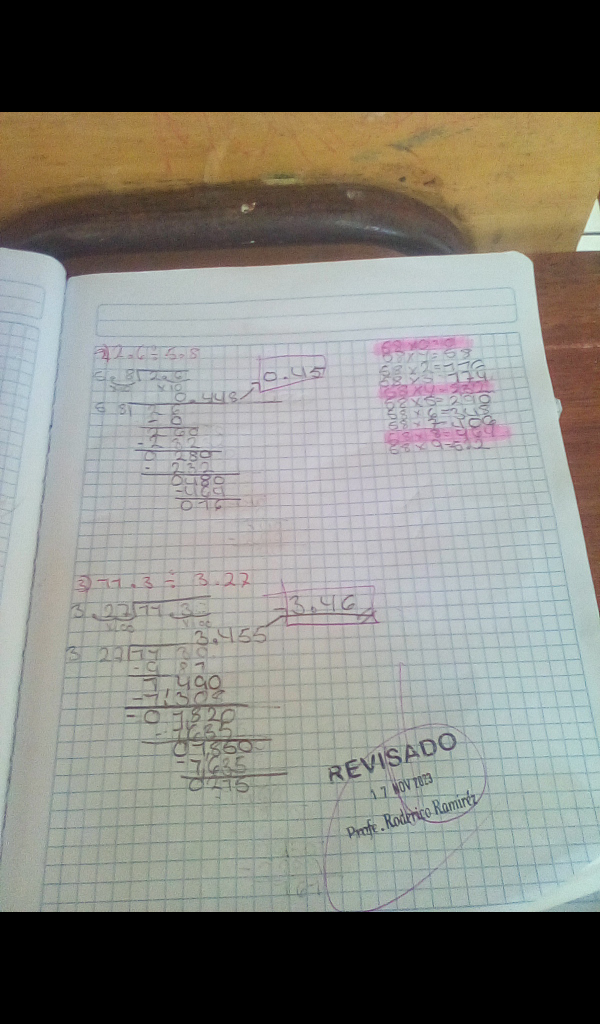 2) 2.6 ÷ 5.8
5.8 2.6
x10 x10
0.448
0.45
58 2 6
- 0
2 60
- 232
0 280
- 232
0480
- 464
016
58 x 0 = 0
58 x 1 = 58
58 x 2 = 116
58 x 3 = 174
58 x 4 = 232
58 x 5 = 290
58 x 6 = 348
58 x 7 = 406
58 x 9 = 522
3) 11.3 ÷ 3.27
3.27 11.3
x100 x100
3.455
3.46
3 27 11 30
- 9 81
1 490
- 1 308
- 0 1820
- 1635
01850
- 1635
0215
REVISADO
17 NOV 2023
Profe. Roderico Ramírez